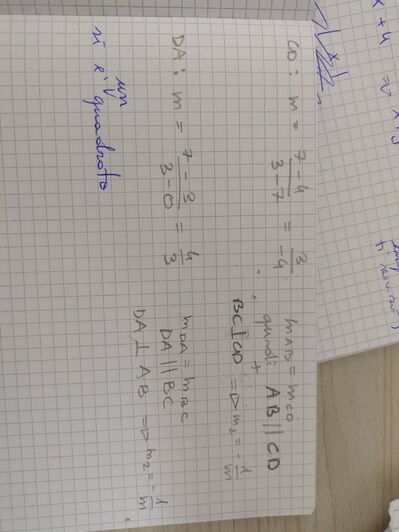 CD: m = 7-4/3-7 = 3/-4
m_AB = m_CD
quindi AB || CD
BC ⊥ CD => m_2 = -1/m
DA: m = 7-3/3-0 = 4/3
m_DA = m_BC
DA || BC
DA ⊥ AB => m_2 = -1/m
si è un quadrato
x + 4 =>